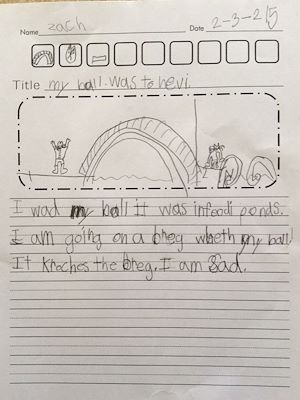 Name zach Date 2-3-215
Title my ball. was to hevi.
I wad my ball it was infoodi ponds.
I am going on a breg wheth my ball.
It kraches the breg. I am Sad.